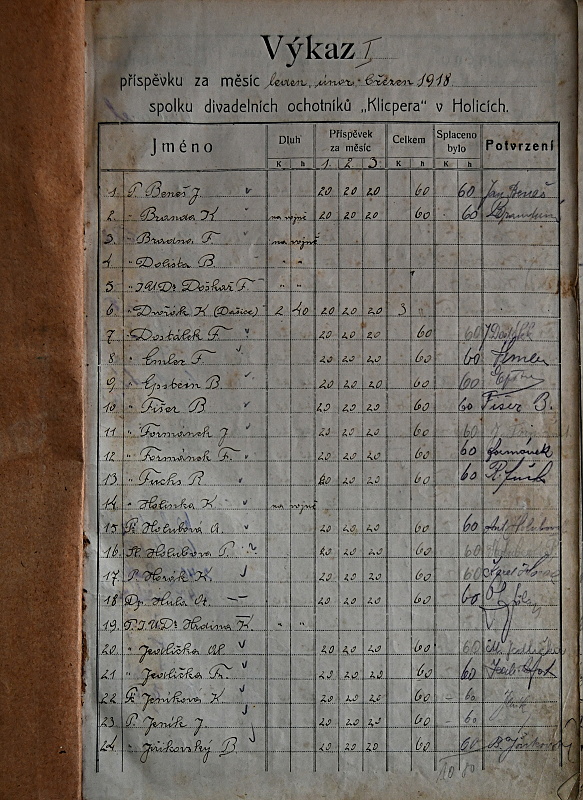 Výkaz I
příspěvku za měsíc leden, únor, březen 1918
spolku divadelních ochotníků „Klicpera“ v Holicích.
Jméno Dluh Příspěvek za měsíc Celkem Splaceno bylo Potvrzení
K h 1. 2. 3. K h K h
1. P. Beneš J. 20 20 20 60 60 Jan Beneš
2. „ Branda K na vojně 20 20 20 60 60
3. „ Bradna F. na vojně
4 „ Dolista B. „ „
5 „ JUDr Doškař F „ „
6 „ Dvořák K (Dašice) 2 40 20 20 20 3 „
7 „ Dostálek F 20 20 20 60 60
8 „ Emler F 20 20 20 60 60
9 „ Epstein B. 20 20 20 60 60
10 „ Fišer B 20 20 20 60 60 Fišer B.
11 „ Formánek J 20 20 20 60 60
12 „ Formánek F. 20 20 20 60 60 Formánek
13 „ Fuchs R 20 20 20 60 60 R. Fuchs
14 „ Holinka K na vojně
15 Pí Holubová A. 20 20 20 60 60 Ant. Holubová
16 Sl. Holubova P. 20 20 20 60 60
17 P. Horák K. 20 20 20 60 60
18 Dp. Hůla Ot. 20 20 20 60 60
19 P. JUDr Hrdina K. „ „
20 „ Jedlička Al 20 20 20 60 60
21 „ Jedlička Fr. 20 20 20 60 60
22 Pí Jeníková K 20 20 20 60 60
23 P. Jeník J. 20 20 20 60 60
24 „ Jirikovský B. 20 20 20 60 60
10 80